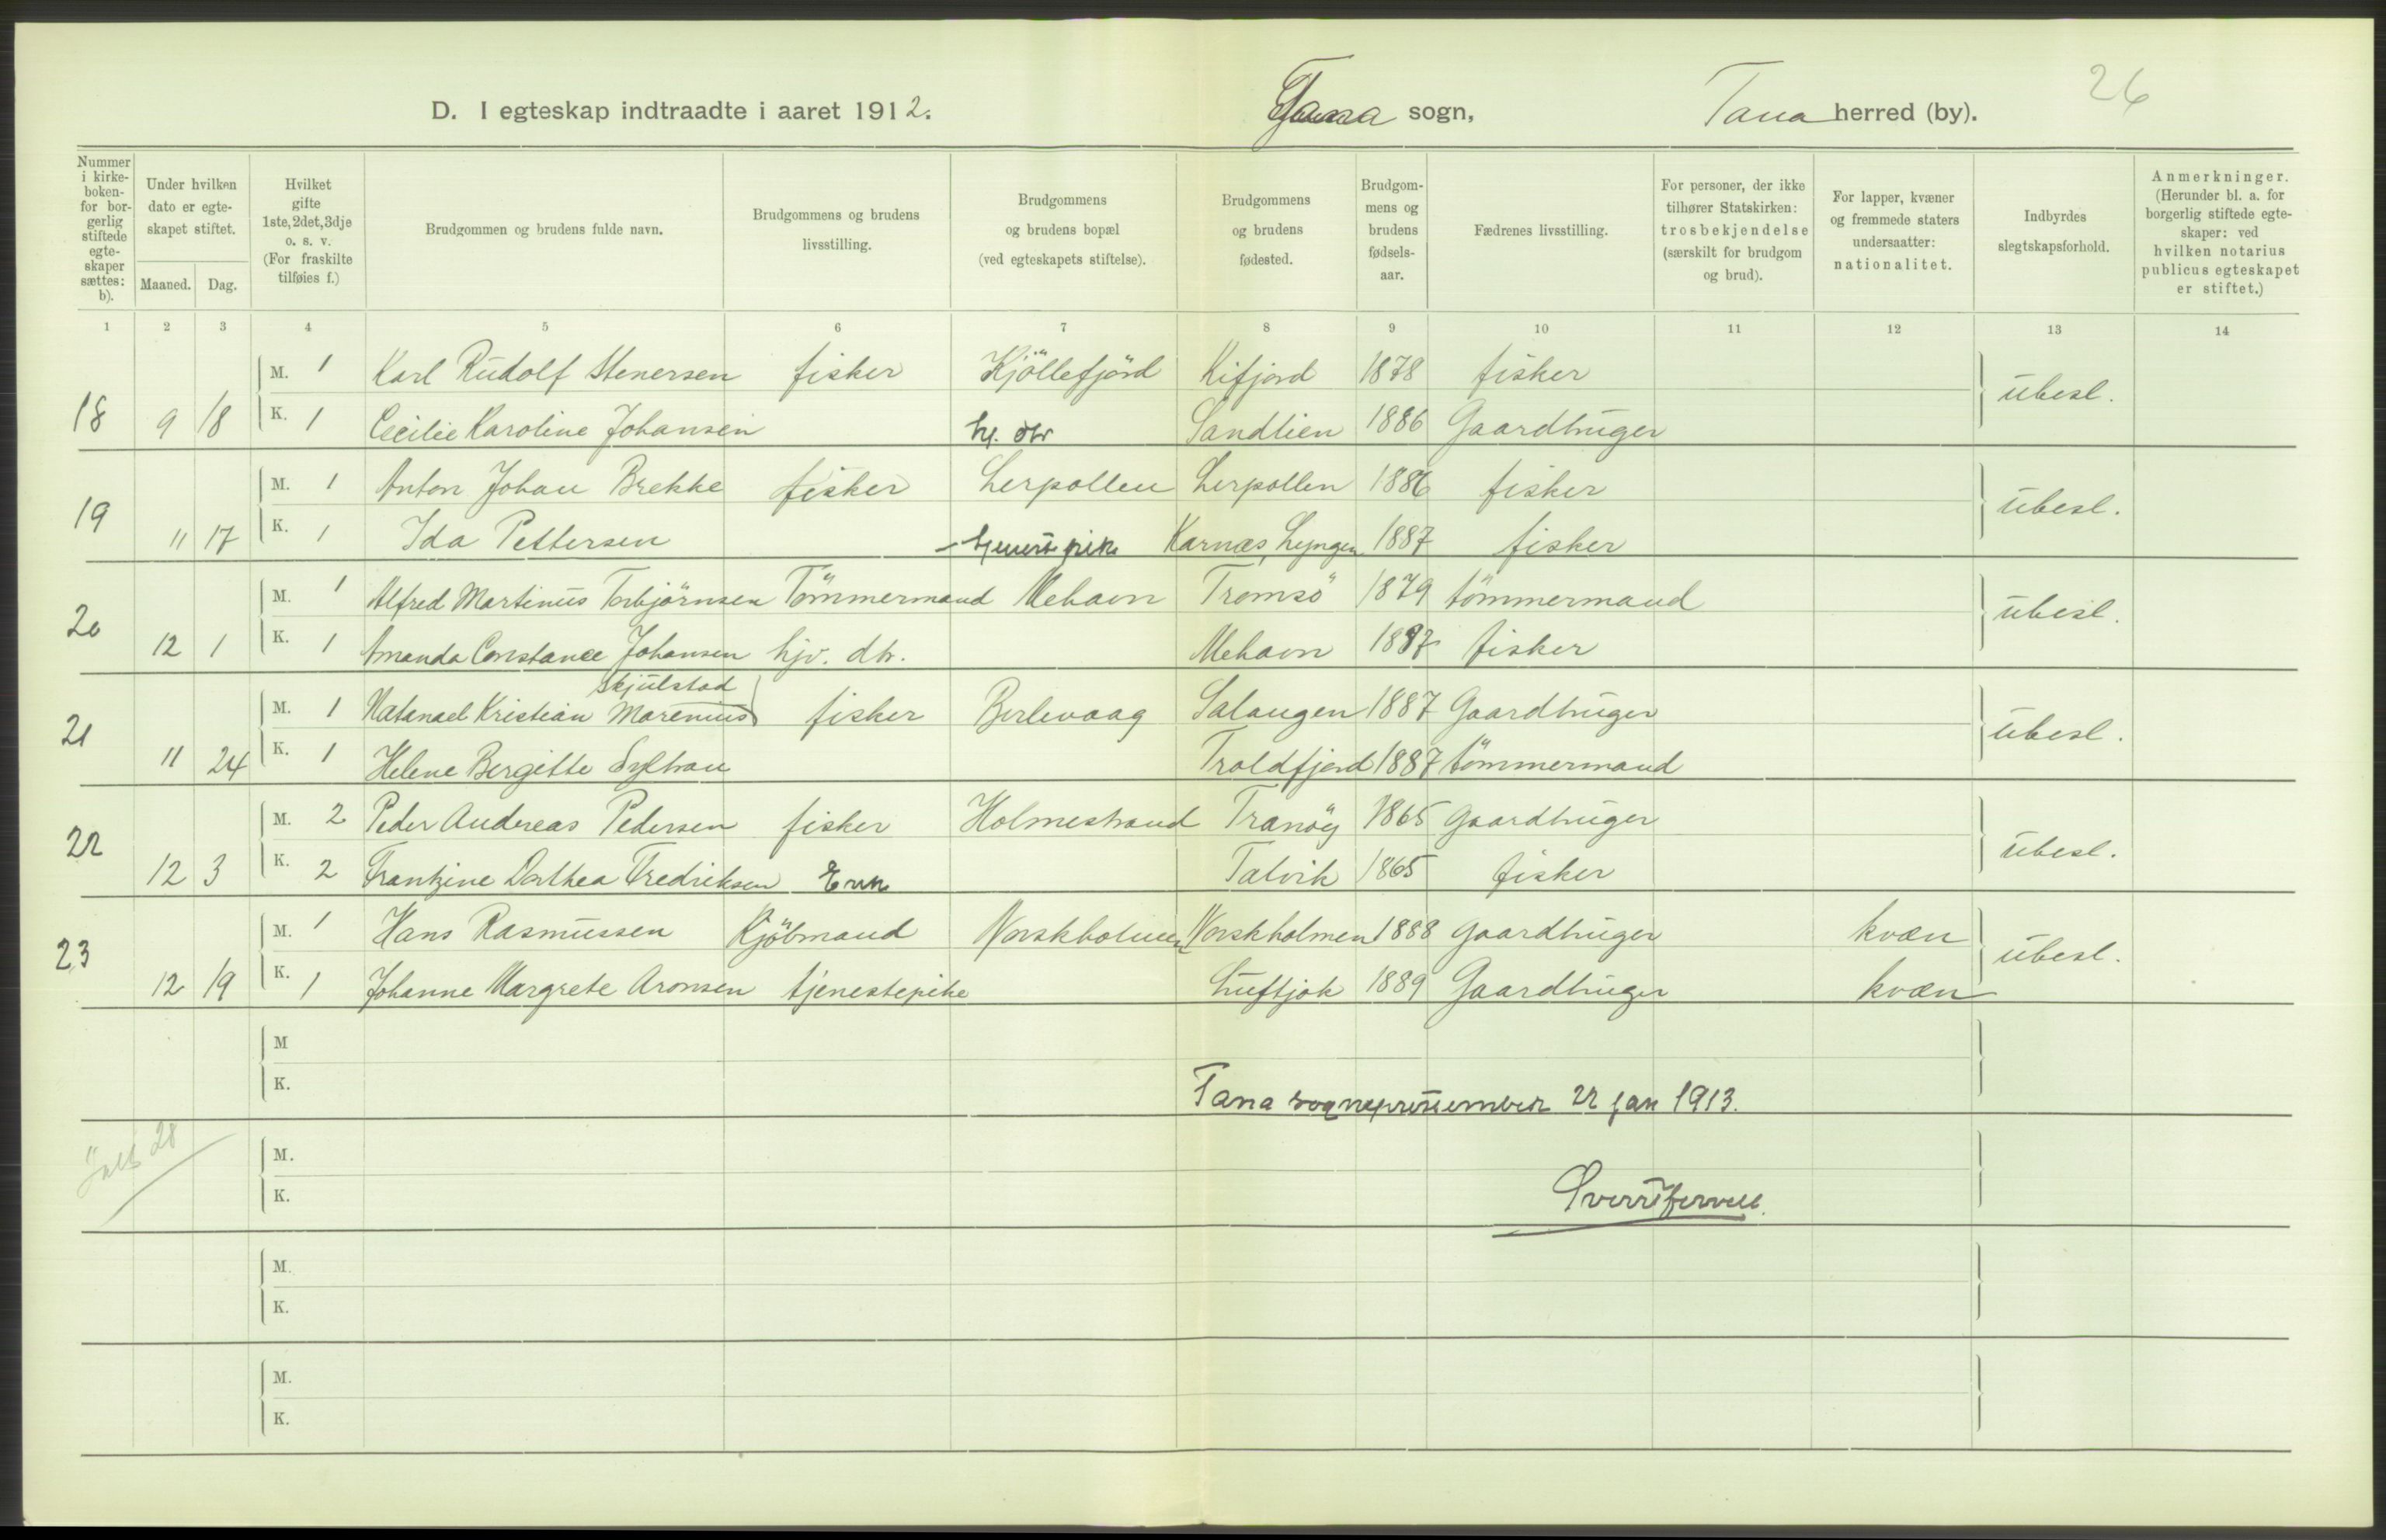 26
D. I egteskap indtraadte i aaret 1912. Tana sogn, Tana herred (by).
Nummer i kirke-boken- for bor-gerlig stiftede egte-skaper sættes: b).
Under hvilken dato er egte-skapet stiftet.
Maaned. Dag.
Hvilket gifte 1ste, 2det, 3dje o. s. v. (For fraskilte tilføies f.)
Brudgommen og brudens fulde navn.
Brudgommens og brudens livsstilling.
Brudgommens og brudens bopæl (ved egteskapets stiftelse).
Brudgommens og brudens fødested.
Brudgom-mens og brudens fødsels-aar.
Fædrenes livsstilling.
For personer, der ikke tilhører Statskirken: trosbekjendelse (særskilt for brudgom og brud).
For lapper, kvæner og fremmede staters undersaatter: nationalitet.
Indbyrdes slegtskapsforhold.
Anmerkninger. (Herunder bl. a. for borgerlig stiftede egte-skaper: ved hvilken notarius publicus egteskapet er stiftet.)
1 2 3 4 5 6 7 8 9 10 11 12 13 14
M. 1 Karl Rudolf Stenersen fisker Kjöllefjord Kifjord 1878 fisker
18 9 18 K. 1 Cecilie Karoline Johansen Sandlien 1886 Gaardbruger ubesl.
M. 1 Anton Johan Brekke fisker Lerpollen Lerpollen 1886 fisker
19 11 17 K. 1 Ida Pettersen tjenestepike Karnæs, Lyngen 1887 fisker ubesl.
M. 1 Alfred Martinus Torbjörnsen Tömmermand Mehavn Tromsö 1879 tömmermand
20 12 1 K. 1 Amanda Constance Johansen hjv. dtr. Mehavn 1887 fisker ubesl.
Skjulstad
M. 1 Natanael Kristian Marenius fisker Berlevaag Salangen 1887 Gaardbruger
21 11 24 K. 1 Helene Bergitte Troldfjord 1887 tömmermand ubesl.
M. 2 Peder Andreas Pedersen fisker Holmestrand Tranöy 1865 Gaardbruger
22 12 3 K. 2 Frantzine Dorthea Fredriksen Enke Talvik 1865 fisker ubesl.
M. 1 Hans Rasmussen Kjöbmand Norskholmen Norskholmen 1888 Gaardbruger kvæn
23 12 19 K. 1 Johanne Margrete Aronsen tjenestepike Luftjok 1889 Gaardbruger kvæn ubesl.
M
K.
Tana sogneprestembede 22 jan 1913.
M.
K.
M.
K.
M.
K.